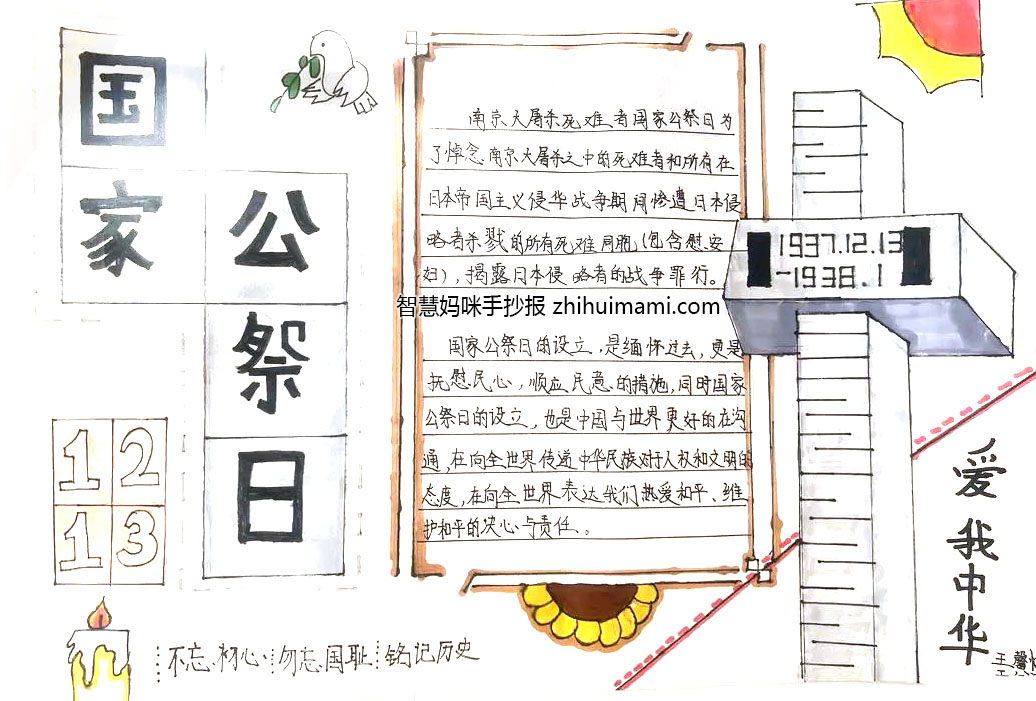 国家
公祭日
12
13
南京大屠杀死难者国家公祭日为
了悼念南京大屠杀之中的死难者和所有在
日本帝国主义侵华战争期间惨遭日本侵
略者杀戮的所有死难同胞(包含慰安
妇),揭露日本侵略者的战争罪行。
智慧妈咪手抄报 zhihuimami.com
国家公祭日的设立,是缅怀过去,更是
抚慰民心,顺应民意的措施,同时国家
公祭日的设立,也是中国与世界更好的在沟
通,在向全世界传递中华民族对于人权和文明的
态度,在向全世界表达我们热爱和平、维
护和平的决心与责任。
1937.12.13
-1938.1
爱我中华
王馨
不忘初心 勿忘国耻 铭记历史